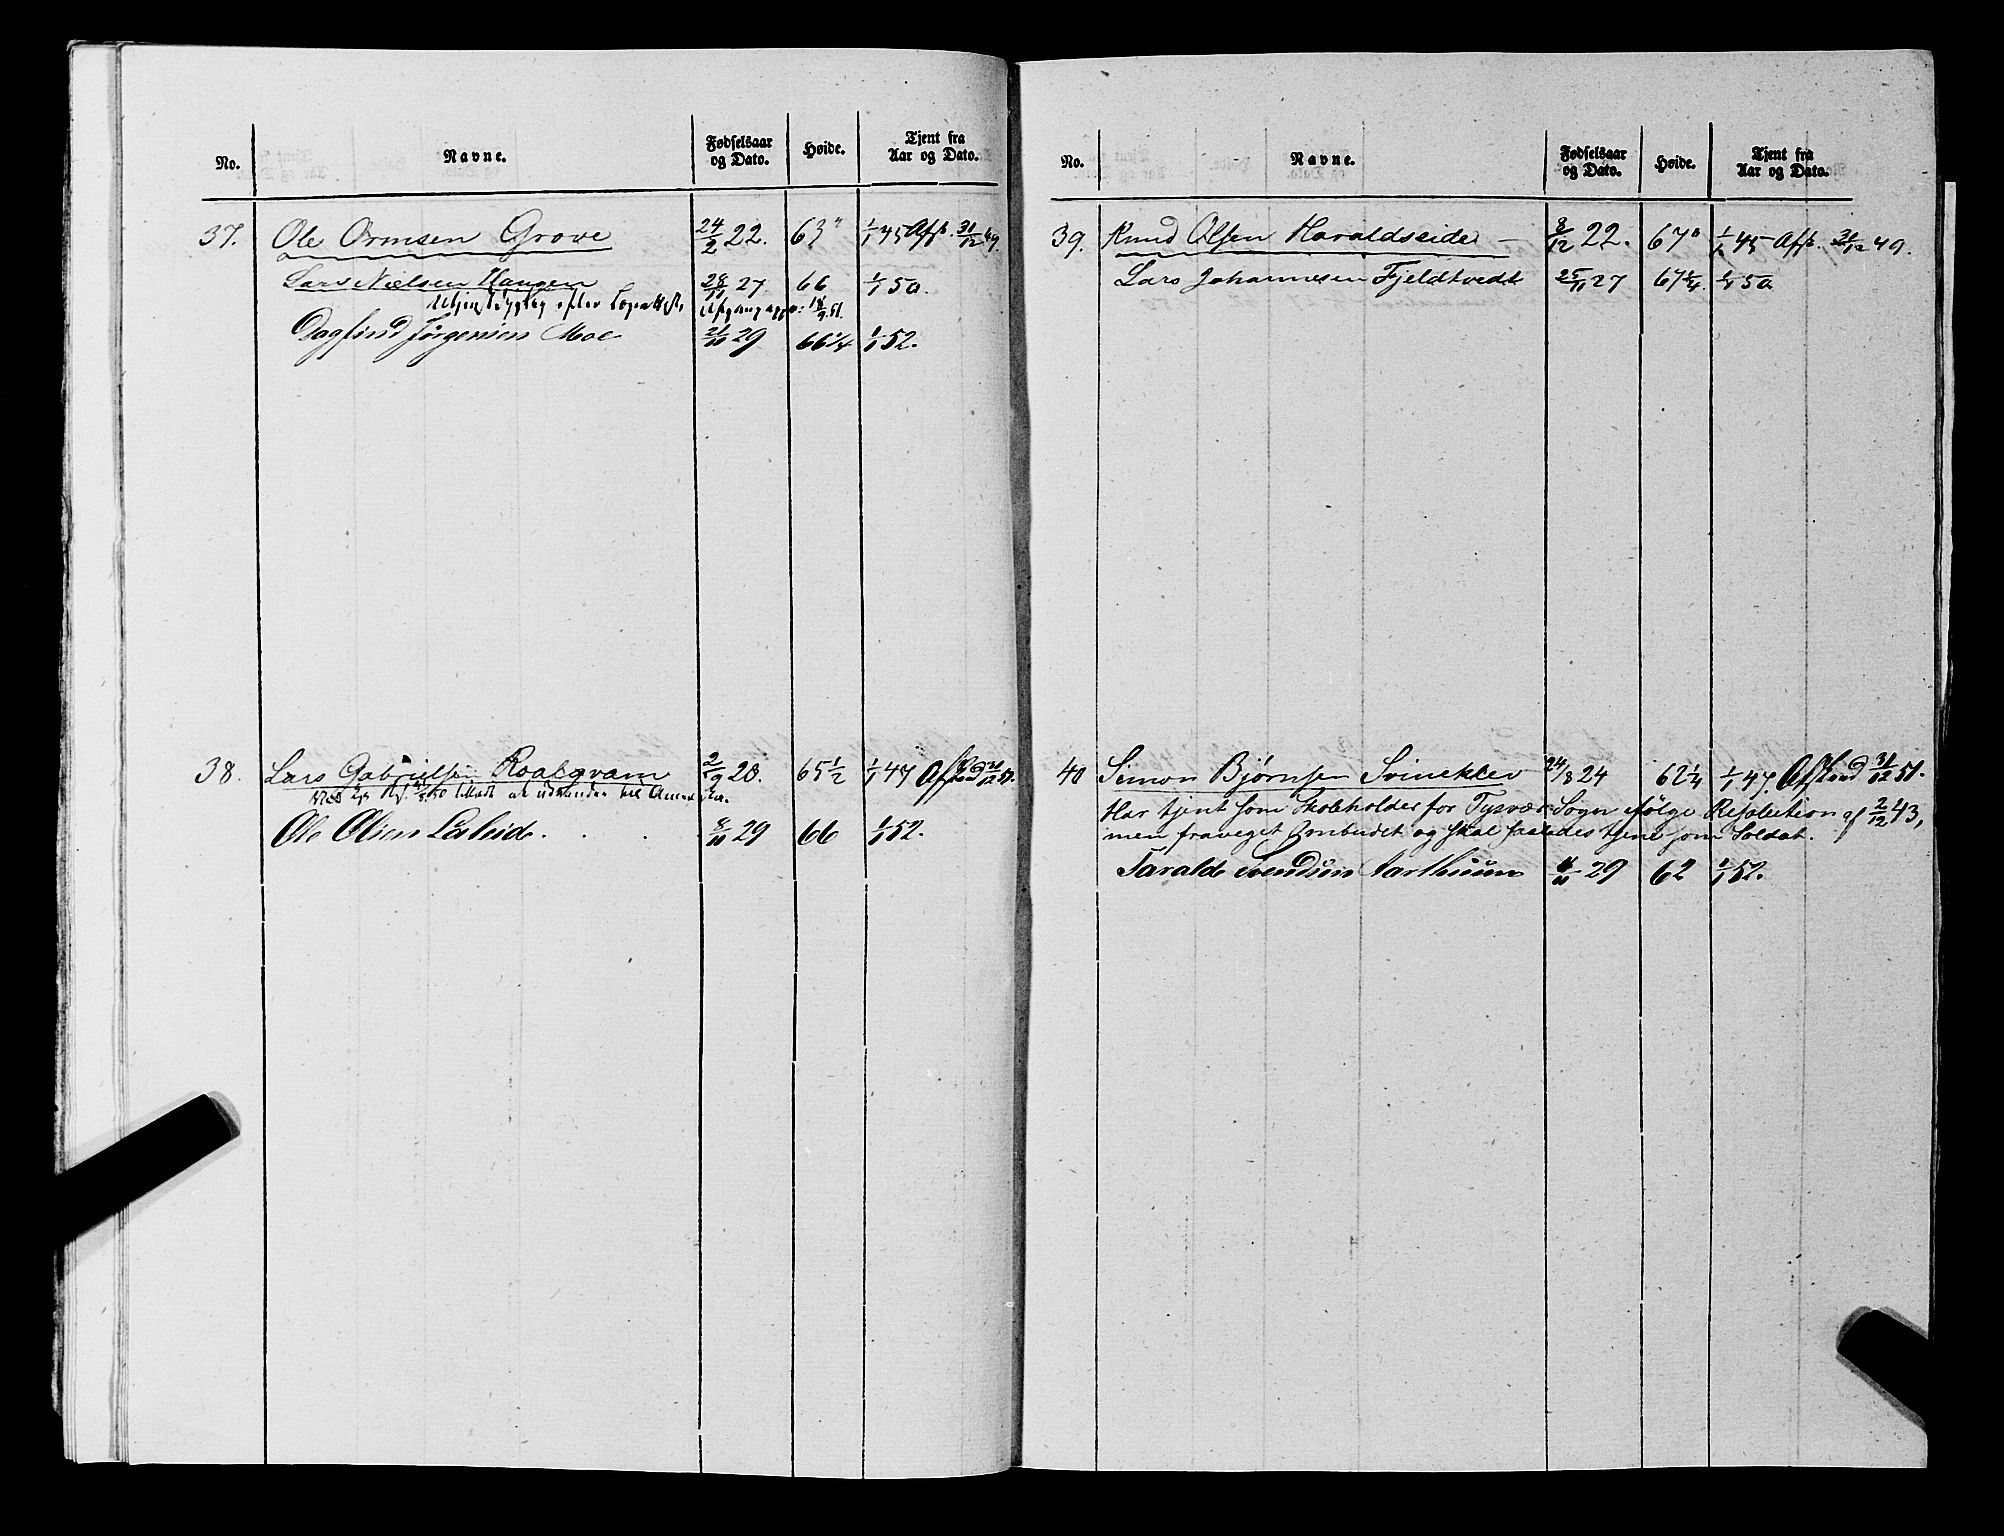 No. Navne. Fødselsaar og Dato. Høide. Tjent fra Aar og Dato.
37. Ole Ormsen Grove 24/2 22. 63" 1/1 45 Afsk. 31/12 49.
Lars Nielsen Haugen 28/11 27 66 1/1 50.
efter 18/9 51.
Dagfind Jørgensen Moe 21/10 29 66 1/4 1/1 52.
38. Lars Gabrielsen Roalqvam 2/9 28. 65 1/2 1/1 47 Afskeed 31/12 51.
tilladt at udvandre til Amerika.
Ole Olsen 8/10 29 66 1/1 52.
No. Navne. Fødselsaar og Dato. Høide. Tjent fra Aar og Dato.
39. Knud Olsen Haraldseide – 8/12 22. 67" 1/1 45 Afsk. 31/12 49.
Lars Johannesen Fjeldtvedt 25/11 27 67 1/4 1/1 50
40 Simon Bjørnsen Svineklev 24/8 24 62 1/4 1/1 47. Afskeed 31/12 51.
Har tjent som Skoleholder for Tysvær Sogn ifølge Resolution af 2/12 43,
men fraveget Ombudet og skal saaledes tjene som Soldat.
Taralde Svendsen Aarthuun 4/11 29 62 1/1 52.